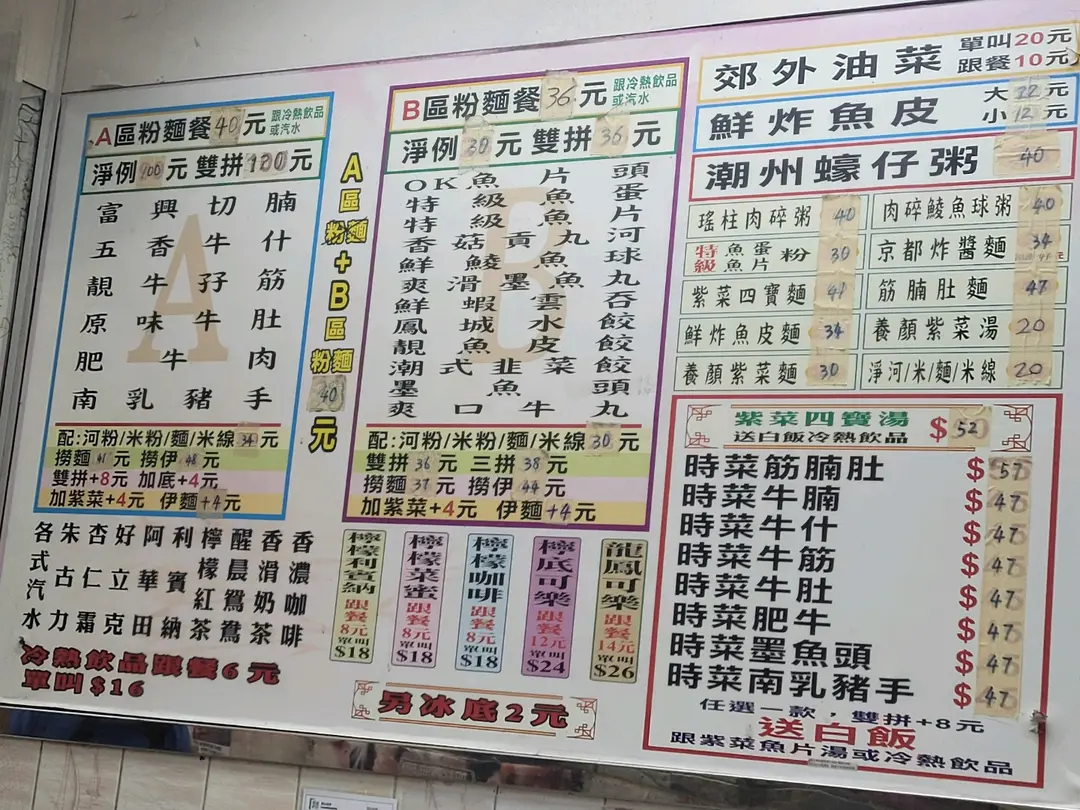 A區粉麵餐40元 跟冷熱飲品或汽水
淨例100元 雙拼120元
富興切腩
五香牛什
靚牛孖筋
原味牛肚
肥牛肉
南乳豬手
配:河粉/米粉/麵/米線34元
撈麵41元 撈伊48元
雙拼+8元 加底+4元
加紫菜+4元 伊麵+4元
A區粉麵+B區粉麵40元
B區粉麵餐36元 跟冷熱飲品或汽水
淨例30元 雙拼36元
OK魚片頭
特級魚蛋
特級魚片
香菇貢丸河
鮮鯪魚球
爽滑墨魚丸
鮮蝦雲吞
鳳城水餃
靚魚皮餃
潮式韭菜餃
墨魚頭
爽口牛丸
配:河粉/米粉/麵/米線30元
雙拼36元 三拼38元
撈麵37元 撈伊44元
加紫菜+4元 伊麵+4元
郊外油菜 單叫20元 跟餐10元
鮮炸魚皮 大22元 小12元
潮州蠔仔粥 40
瑤柱肉碎粥 40
肉碎鯪魚球粥 40
特級魚蛋魚片粉 30
京都炸醬麵 34
紫菜四寶麵
筋腩肚麵 47
鮮炸魚皮麵 34
養顏紫菜湯 20
養顏紫菜麵 30
淨河/米/麵/米線 20
紫菜四寶湯 $52
送白飯冷熱飲品
時菜筋腩肚 $57
時菜牛腩 $47
時菜牛什 $47
時菜牛筋 $47
時菜牛肚 $47
時菜肥牛 $47
時菜墨魚頭 $47
時菜南乳豬手 $47
任選一款，雙拼+8元
送白飯
跟紫菜魚片湯或冷熱飲品
各式汽水
朱古力
杏仁霜
好立克
阿華田
利賓納
檸檬紅茶
醒晨鴛鴦
香滑奶茶
香濃咖啡
冷熱飲品跟餐6元
單叫$16
檸檬利賓納 跟餐8元 單叫$18
檸檬菜蜜 跟餐8元 單叫$18
檸檬咖啡 跟餐8元 單叫$18
檸底可樂 跟餐12元 單叫$24
龍鳳可樂 跟餐14元 單叫$26
另冰底2元